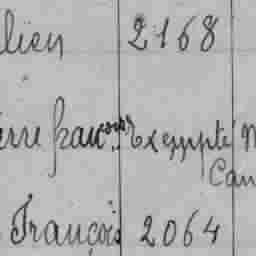 lien 2168
erre françois Exempté
Can
François 2064